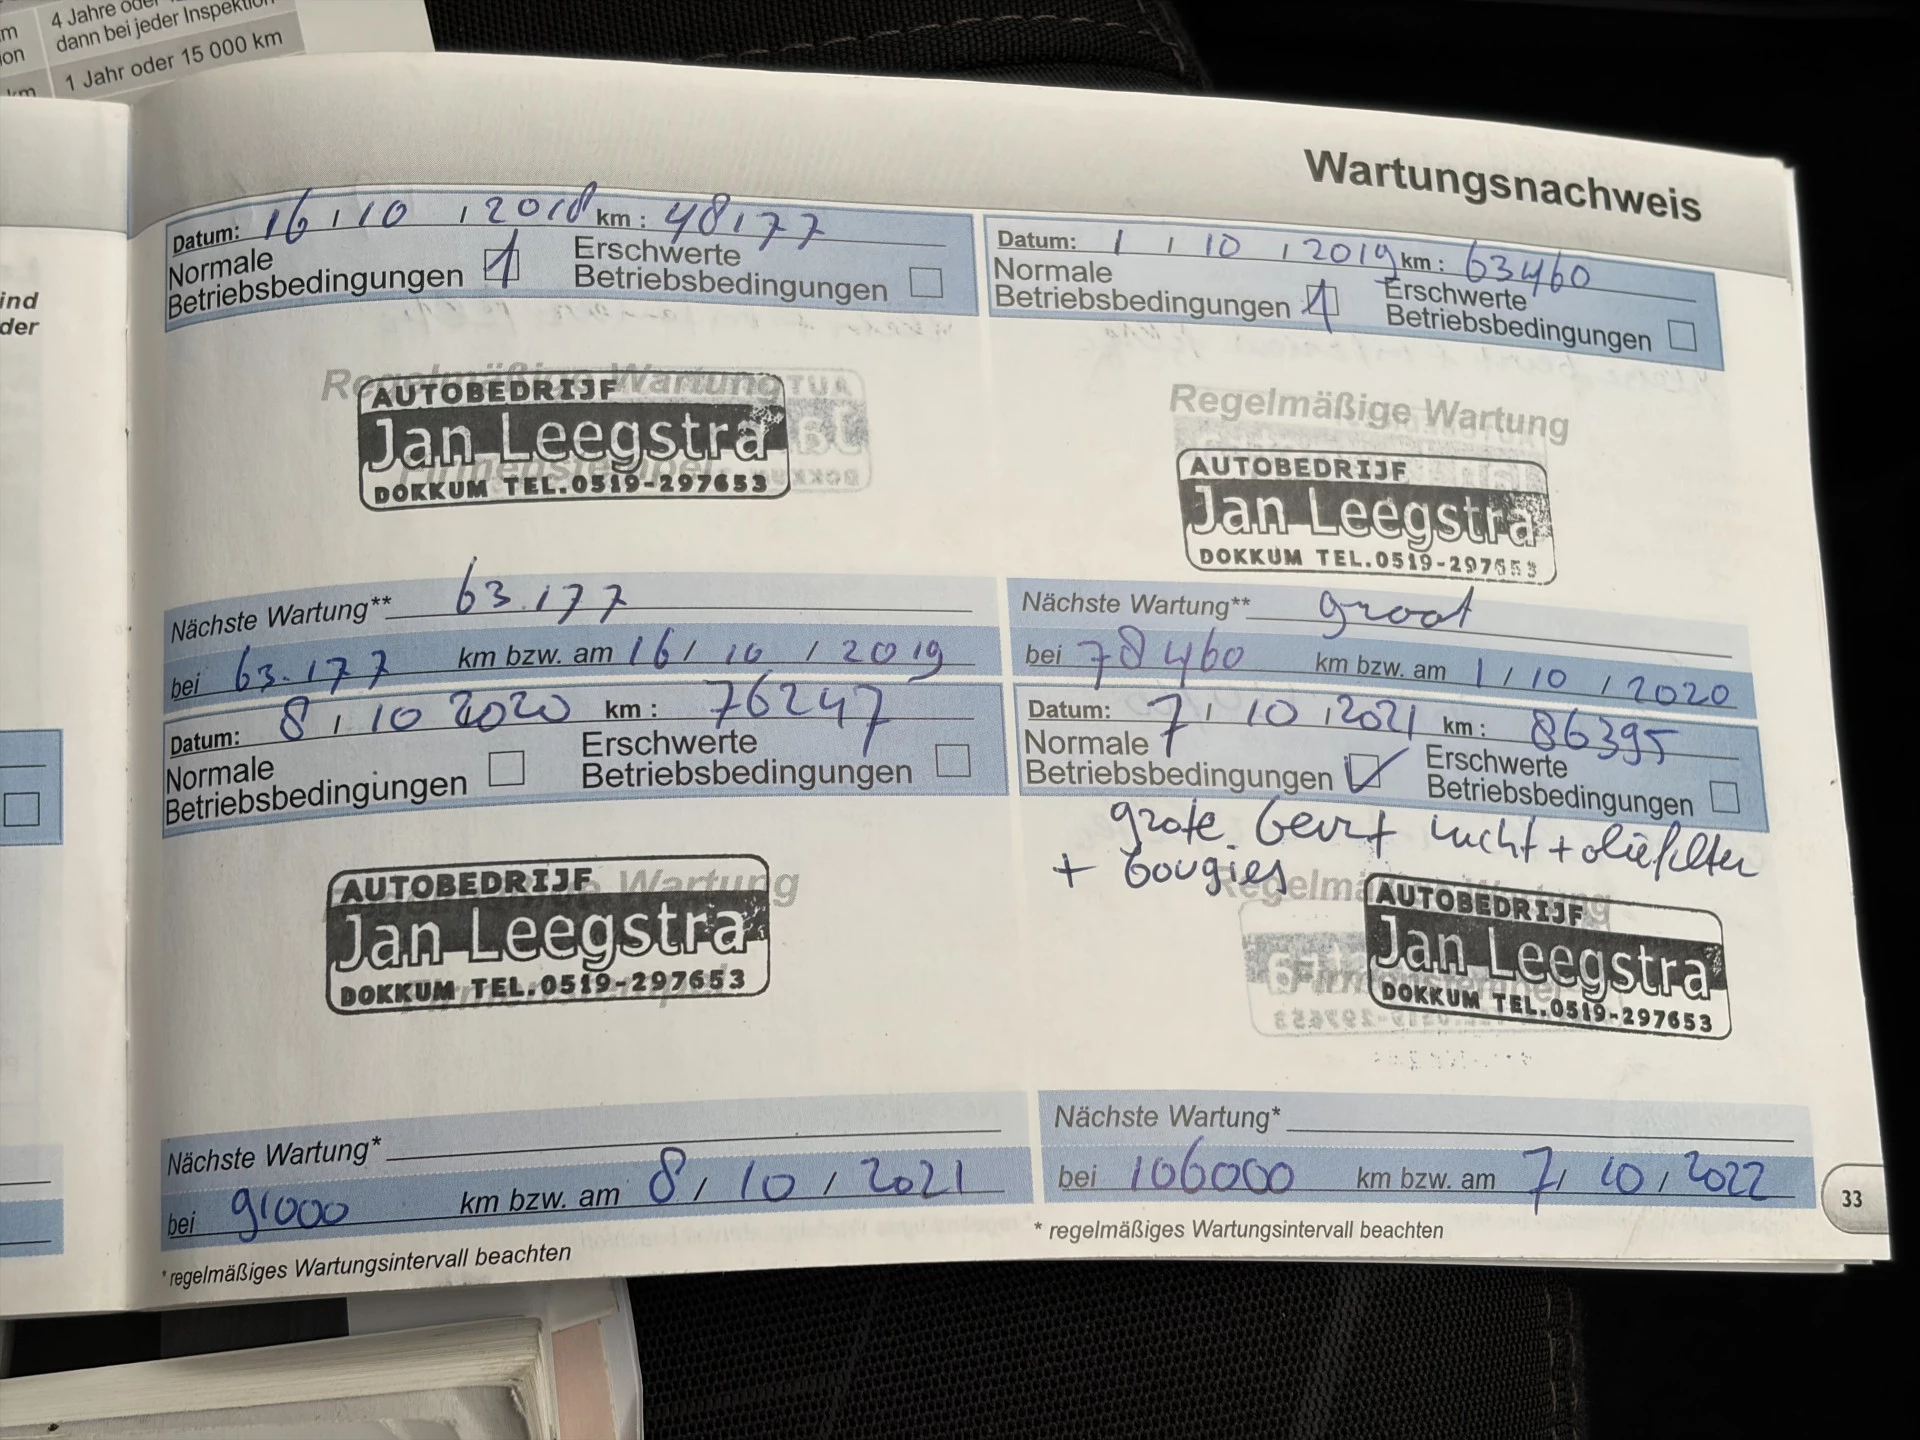 4 Jahre oder
dann bei jeder Inspektion
1 Jahr oder 15 000 km
m
ion
km
ind
der
Wartungsnachweis
Datum: 16 / 10 / 2018 km : 48177
Normale
Betriebsbedingungen
Erschwerte
Betriebsbedingungen
Regelmäßige Wartung
Firmenstempel
AUTOBEDRIJF
Jan Leegstra
DOKKUM TEL.0519-297653
Nächste Wartung** 63.177
bei 63.177 km bzw. am 16 / 10 / 2019
Datum: 1 / 10 / 2019 km : 63460
Normale
Betriebsbedingungen
Erschwerte
Betriebsbedingungen
Regelmäßige Wartung
AUTOBEDRIJF
Jan Leegstra
DOKKUM TEL.0519-297653
Nächste Wartung** groot
bei 78460 km bzw. am 1 / 10 / 2020
Datum: 8 / 10 2020 km : 76247
Normale
Betriebsbedingungen
Erschwerte
Betriebsbedingungen
Regelmäßige Wartung
Firmenstempel
AUTOBEDRIJF
Jan Leegstra
DOKKUM TEL.0519-297653
Nächste Wartung*
bei 91000 km bzw. am 8 / 10 / 2021
*regelmäßiges Wartungsintervall beachten
Datum: 7 / 10 / 2021 km : 86395
Normale
Betriebsbedingungen
Erschwerte
Betriebsbedingungen
grote beurt lucht + oliefilter
+ bougies
Regelmäßige Wartung
Firmenstempel
AUTOBEDRIJF
Jan Leegstra
DOKKUM TEL.0519-297653
Nächste Wartung*
bei 106000 km bzw. am 7 / 10 / 2022
* regelmäßiges Wartungsintervall beachten
33